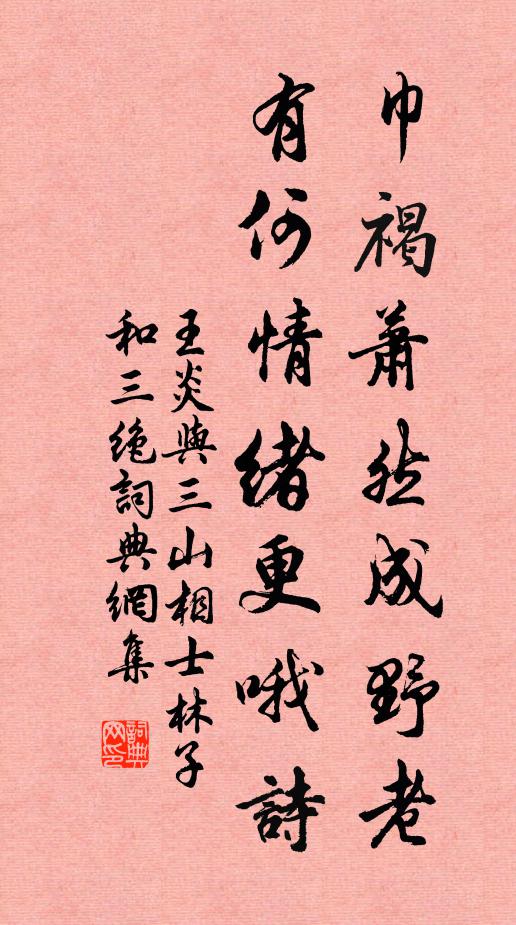 巾褐萧然成野老
有何情緒更哦詩
王炎與三山相士林子
和三絶詞典網集
詞典
网印